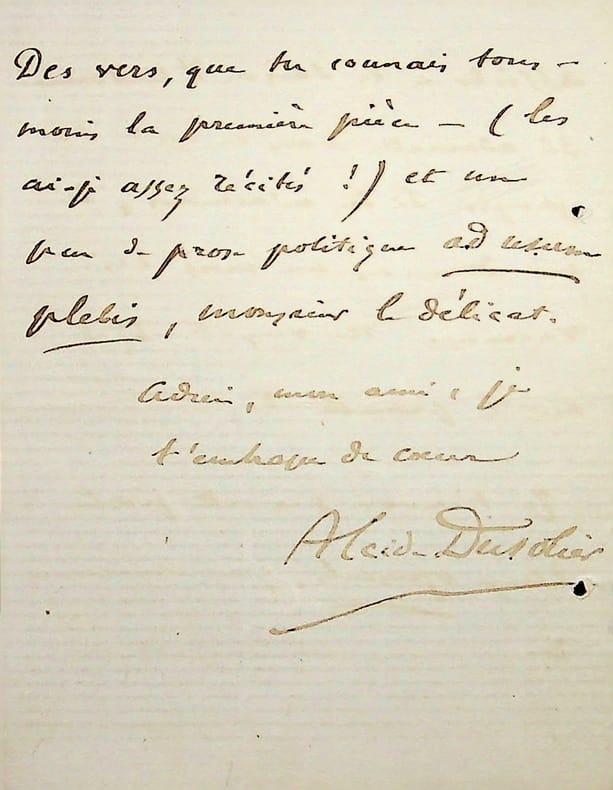 Des vers, que tu connais tous –
moins la première pièce – (les
ai-je assez récités !) et un
peu de prose politique ad usum
plebis, monsieur le délicat.
Adieu, mon ami, je
t'embrasse de cœur
Alcide Dusolier